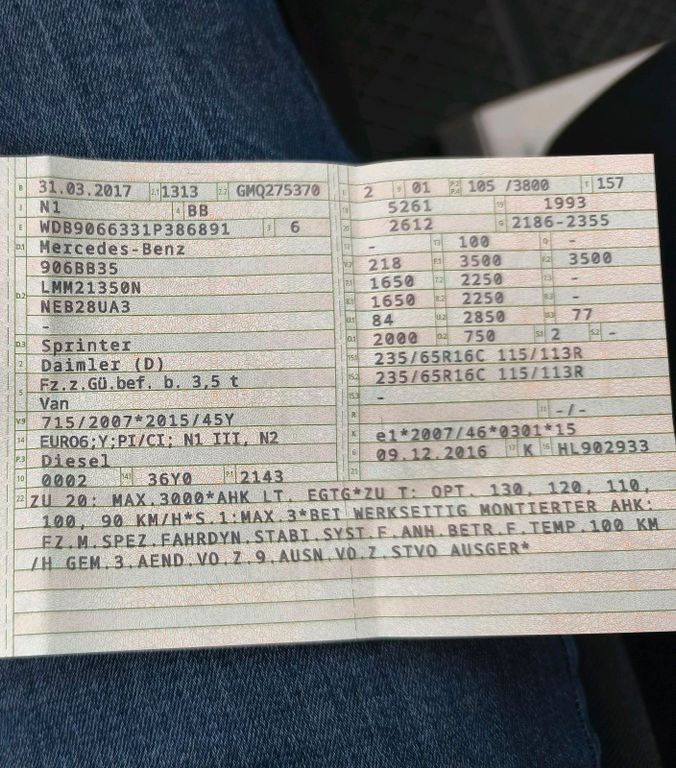 B 31.03.2017 2.1 1313 2.2 GMQ275370
J N1 4 BB
E WDB9066331P386891 3 6
D.1 Mercedes-Benz
906BB35
D.2 LMM21350N
NEB28UA3
-
D.3 Sprinter
2 Daimler (D)
5 Fz.z.Gü.bef. b. 3,5 t
Van
V.9 715/2007*2015/45Y
14 EURO6;Y;PI/CI; N1 III, N2
P.3 Diesel
10 0002 14.1 36Y0 P.1 2143
L 2 9 01 P.2 P.4 105 /3800 T 157
18 5261 19 1993
20 2612 G 2186-2355
12 - 13 100 Q -
V.7 218 F.1 3500 F.2 3500
7.1 1650 7.2 2250 7.3 -
8.1 1650 8.2 2250 8.3 -
U.1 84 U.2 2850 U.3 77
O.1 2000 O.2 750 S.1 2 S.2 -
15.1 235/65R16C 115/113R
15.2 235/65R16C 115/113R
15.3 -
R 11 -/-
K e1*2007/46*0301*15
6 09.12.2016 17 K 16 HL902933
21
22 ZU 20: MAX.3000*AHK LT. EGTG*ZU T: OPT. 130, 120, 110,
100, 90 KM/H*S.1:MAX.3*BEI WERKSEITIG MONTIERTER AHK:
FZ.M.SPEZ.FAHRDYN.STABI.SYST.F.ANH.BETR.F.TEMP.100 KM
/H GEM.3.AEND.VO.Z.9.AUSN.VO.Z.STVO AUSGER*